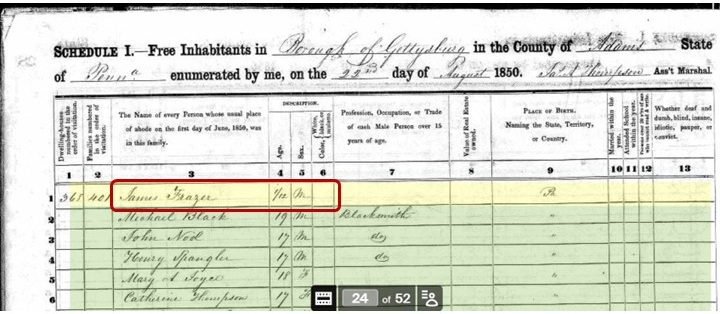 SCHEDULE I.—Free Inhabitants in Borough of Gettysburg in the County of Adams State
of Penna enumerated by me, on the 22nd day of August 1850. Thompson Ass't Marshal.
Dwelling-houses numbered in the order of visitation.
Families numbered in the order of visitation.
The Name of every Person whose usual place of abode on the first day of June, 1850, was in this family.
DESCRIPTION.
Age.
Sex.
Color, White, black, or mulatto.
Profession, Occupation, or Trade of each Male Person over 15 years of age.
Value of Real Estate owned.
PLACE OF BIRTH.
Naming the State, Territory, or Country.
Married within the year.
Attended School within the year.
Whether deaf and dumb, blind, insane, idiotic, pauper, or convict.
1 2 3 4 5 6 7 8 9 10 11 12 13
1 365 401 James Frazer 1/12 M Pa
2 Michael Black 19 M Blacksmith "
3 John Noel 17 M do "
4 Henry Spangler 17 M do "
5 Mary A Joyce 18 F "
6 Catherine Thompson 17 F "
24 of 52